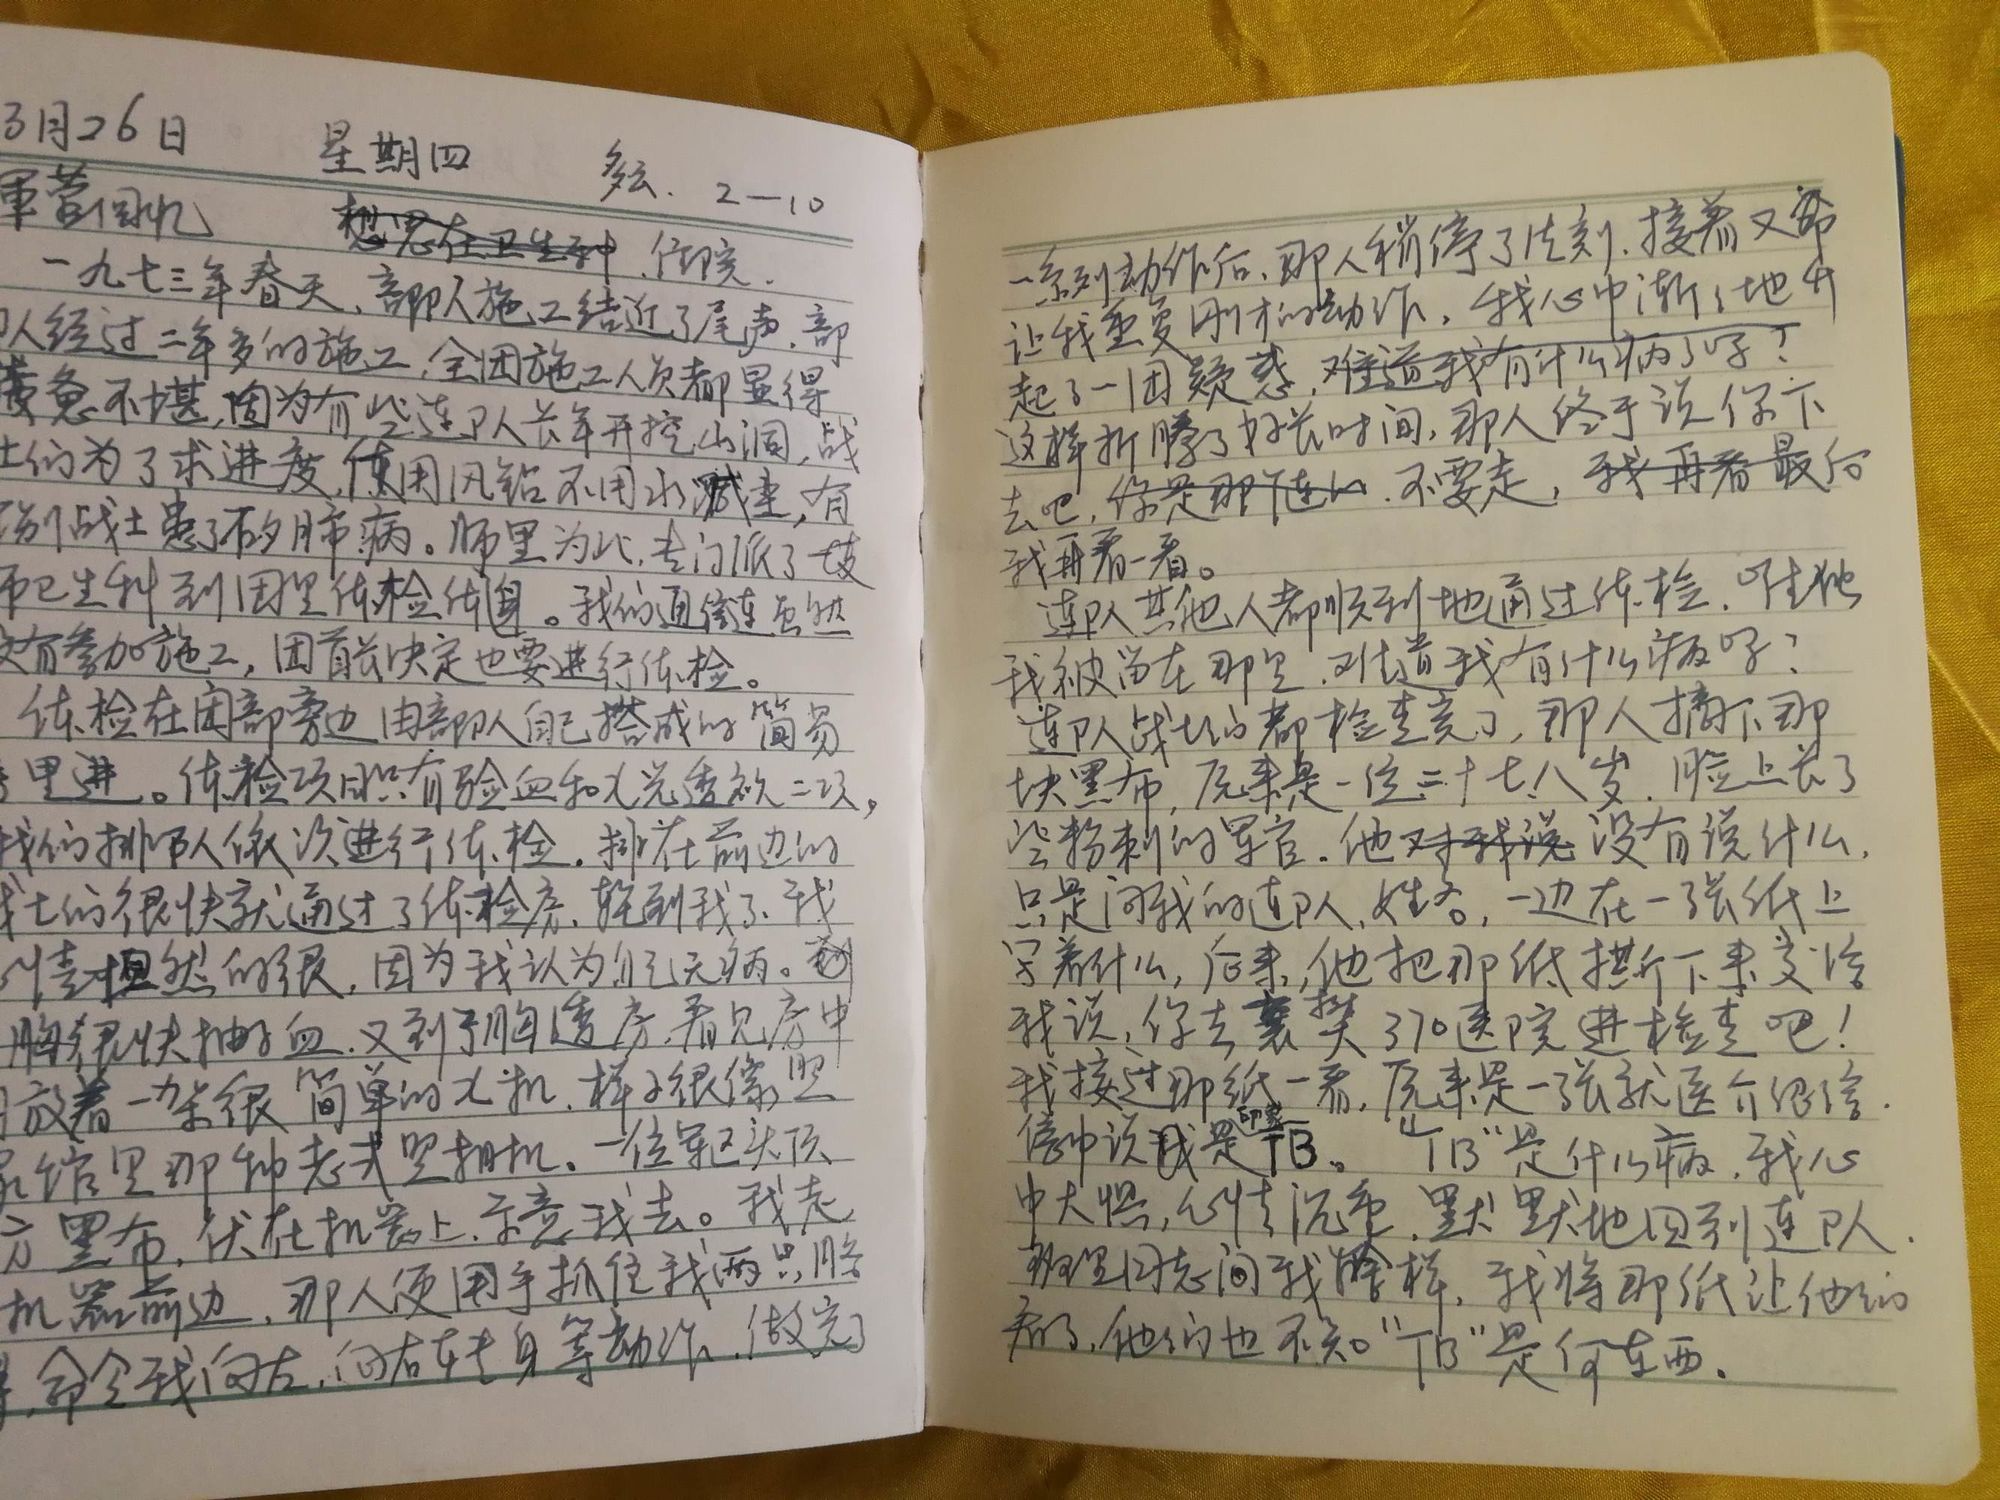 3月26日 星期四 多云. 2—10
軍营回忆 想思在卫生科 住院.
一九七三年春天、部队施工结近了尾声、部
队人经过二年多的施工，全团施工人员都显得
疲惫不堪，因为有些连队长年开挖山洞，战
士们为了求进度，使用风钻不用水减尘，有
别战士患了矽肺病。师里为此，专门派了一支
师卫生科到团里体检体身。我们通信连虽然
没有参加施工，团首长决定也要进行体检。
体检在团部旁边由部队自己搭成的简易
里进。体检项目只有验血和X光透视二项，
我们排队依次进行体检，排在前边的
战士们很快就通过了体检房、轮到我了、我
心情坦然的很，因为我认为自己无病。
胸很快抽了血、又到了胸透房、看见房中
间放着一架很简单的X机、样子很像照
馆里那种老式照相机。一位军医头顶
一方黑布，伏在机器上，示意我去。我走
机器前边，那人便用手抓住我两只胳
膊，命令我向左、向右转身等动作、做完了
一系列动作后、那人稍停了片刻、接着又命
让我重复刚才的动作，我心中渐了地升
起了一团疑惑，难道我有什么病了吗？
这样折腾了好长时间，那人终于说你下
去吧，你是那个连的、不要走，我再看最后
我再看一看。
连队其他人都顺利地通过体检，唯独
我被留在那里、难道我有什么病吗？
连队战士们都检查完了，那人摘下那
块黑布，原来是一位二十七、八岁、脸上长了
些粉刺的军官。他对我说没有说什么，
只是问我的连队、姓名，一边在一张纸上
写着什么，后来，他把那纸撕下来交给
我说，你去襄樊370医院进检查吧！
我接过那纸一看，原来是一张就医介绍信、
信中说我是印象TB。“TB”是什么病，我心
中大惧，心情沉重，默默地回到连队、
班里同志问我啥样，我将那纸让他们
看了，他们也不知“TB”是何东西。